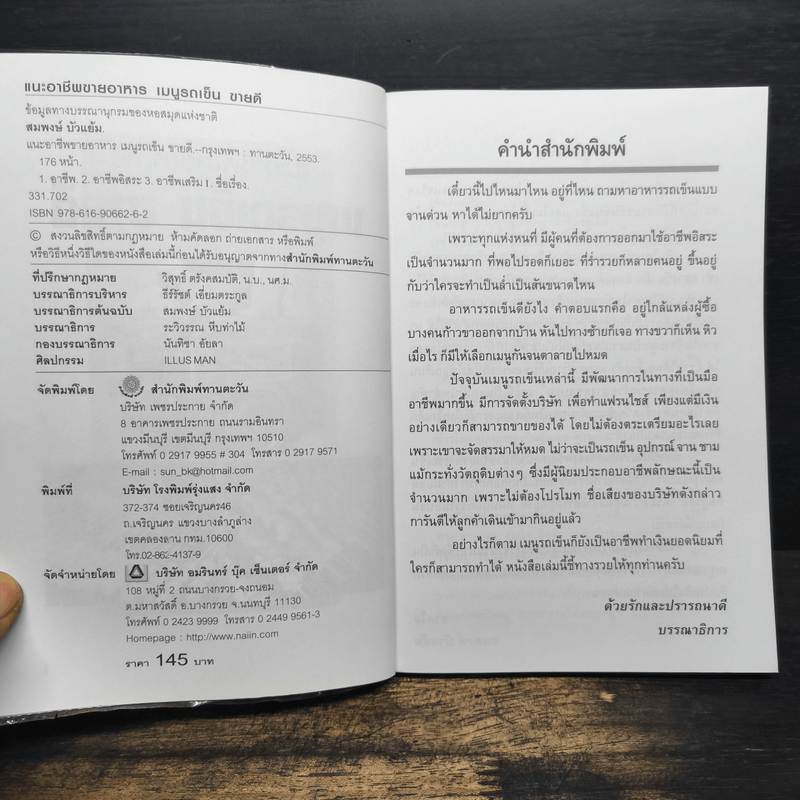 แนะอาชีพขายอาหาร เมนูรถเข็น ขายดี
ข้อมูลทางบรรณานุกรมของหอสมุดแห่งชาติ
สมพงษ์ บัวแย้ม.
แนะอาชีพขายอาหาร เมนูรถเข็น ขายดี.--กรุงเทพฯ : ทานตะวัน, 2553.
176 หน้า.
1. อาชีพ. 2. อาชีพอิสระ 3. อาชีพเสริม I. ชื่อเรื่อง.
331.702
ISBN 978-616-90662-6-2
© สงวนลิขสิทธิ์ตามกฎหมาย ห้ามคัดลอก ถ่ายเอกสาร หรือพิมพ์
หรือวิธีหนึ่งวิธีใดของหนังสือเล่มนี้ก่อนได้รับอนุญาตจากทางสำนักพิมพ์ทานตะวัน
ที่ปรึกษากฎหมาย วิสุทธิ์ ตรังคสมบัติ, น.บ., นศ.ม.
บรรณาธิการบริหาร ธีร์รัชต์ เอี่ยมตระกูล
บรรณาธิการต้นฉบับ สมพงษ์ บัวแย้ม
บรรณาธิการ ระวิวรรณ หีบท่าไม้
กองบรรณาธิการ นันทิชา อัยลา
ศิลปกรรม ILLUS MAN
จัดพิมพ์โดย สำนักพิมพ์ทานตะวัน
บริษัท เพชรประกาย จำกัด
8 อาคารเพชรประกาย ถนนรามอินทรา
แขวงมีนบุรี เขตมีนบุรี กรุงเทพฯ 10510
โทรศัพท์ 0 2917 9955 # 304 โทรสาร 0 2917 9571
E-mail : sun_bk@hotmail.com
พิมพ์ที่ บริษัท โรงพิมพ์รุ่งแสง จำกัด
372-374 ซอยเจริญนคร46
ถ.เจริญนคร แขวงบางลำภูล่าง
เขตคลองสาน กทม.10600
โทร.02-862-4137-9
จัดจำหน่ายโดย บริษัท อมรินทร์ บุ๊ค เซ็นเตอร์ จำกัด
108 หมู่ที่ 2 ถนนบางกรวย-จงถนอม
ต.มหาสวัสดิ์ อ.บางกรวย จ.นนทบุรี 11130
โทรศัพท์ 0 2423 9999 โทรสาร 0 2449 9561-3
Homepage : http://www.naiin.com
ราคา 145 บาท
คำนำสำนักพิมพ์
เดี๋ยวนี้ไปไหนมาไหน อยู่ที่ไหน ถามหาอาหารรถเข็นแบบ
จานด่วน หาได้ไม่ยากครับ
เพราะทุกแห่งหนที่ มีผู้คนที่ต้องการออกมาใช้อาชีพอิสระ
เป็นจำนวนมาก ที่พอไปรอดก็เยอะ ที่ร่ำรวยก็หลายคนอยู่ ขึ้นอยู่
กับว่าใครจะทำเป็นล่ำเป็นสันขนาดไหน
อาหารรถเข็นดียังไง คำตอบแรกคือ อยู่ใกล้แหล่งผู้ซื้อ
บางคนก้าวขาออกจากบ้าน หันไปทางซ้ายก็เจอ ทางขวาก็เห็น หิว
เมื่อไร ก็มีให้เลือกเมนูกันจนตาลายไปหมด
ปัจจุบันเมนูรถเข็นเหล่านี้ มีพัฒนาการในทางที่เป็นมือ
อาชีพมากขึ้น มีการจัดตั้งบริษัท เพื่อทำแฟรนไชส์ เพียงแต่มีเงิน
อย่างเดียวก็สามารถขายของได้ โดยไม่ต้องตระเตรียมอะไรเลย
เพราะเขาจะจัดสรรมาให้หมด ไม่ว่าจะเป็นรถเข็น อุปกรณ์ จาน ชาม
แม้กระทั่งวัตถุดิบต่างๆ ซึ่งมีผู้นิยมประกอบอาชีพลักษณะนี้เป็น
จำนวนมาก เพราะไม่ต้องโปรโมท ชื่อเสียงของบริษัทดังกล่าว
การันตีให้ลูกค้าเดินเข้ามากินอยู่แล้ว
อย่างไรก็ตาม เมนูรถเข็นก็ยังเป็นอาชีพทำเงินยอดนิยมที่
ใครก็สามารถทำได้ หนังสือเล่มนี้ชี้ทางรวยให้ทุกท่านครับ
ด้วยรักและปรารถนาดี
บรรณาธิการ